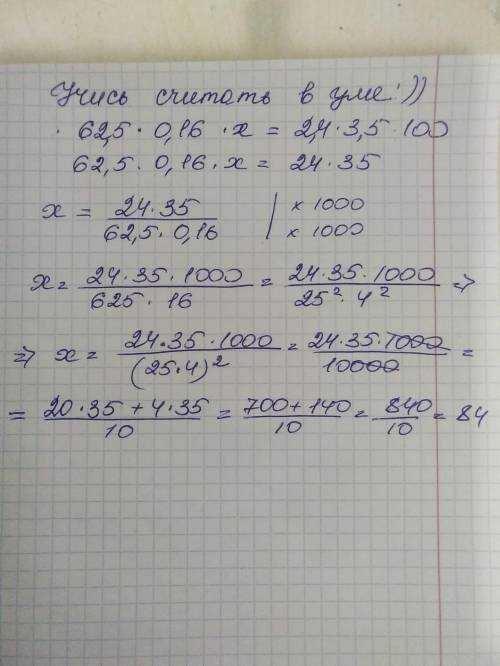 Учись считать в уме:))
62,5 · 0,16 · x = 2,4 · 3,5 · 100
62,5 · 0,16 · x = 24 · 35
x = 24·35 / 62,5·0,16 | x 1000 x 1000
x = 24·35·1000 / 625·16 = 24·35·1000 / 25²·4² =>
=> x = 24·35·1000 / (25·4)² = 24·35·1000 / 10000 =
= 20·35+4·35 / 10 = 700+140 / 10 = 840 / 10 = 84